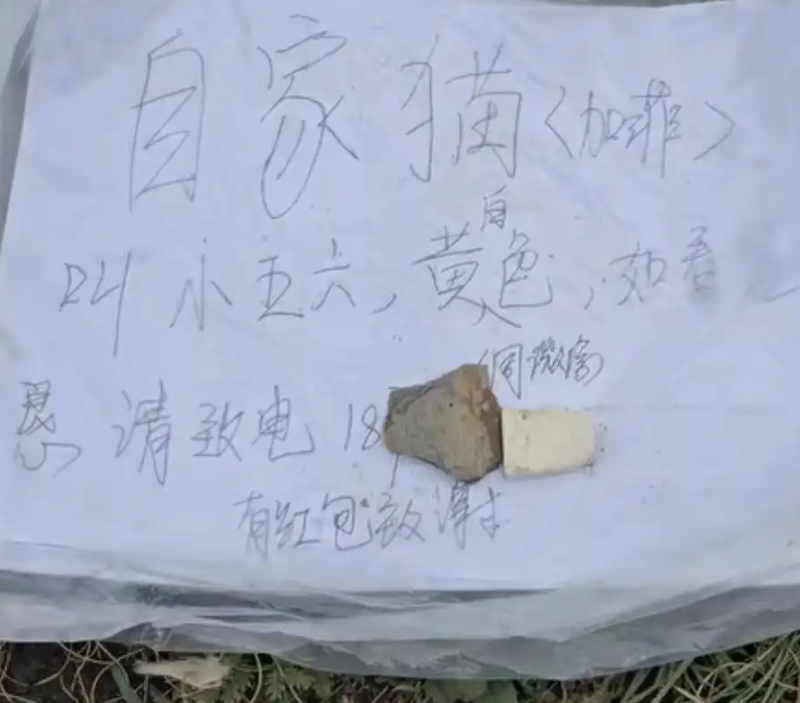 自家猫〈加菲〉
叫小五六，黄白色，如看
同微信
恳请致电18
有红包致谢